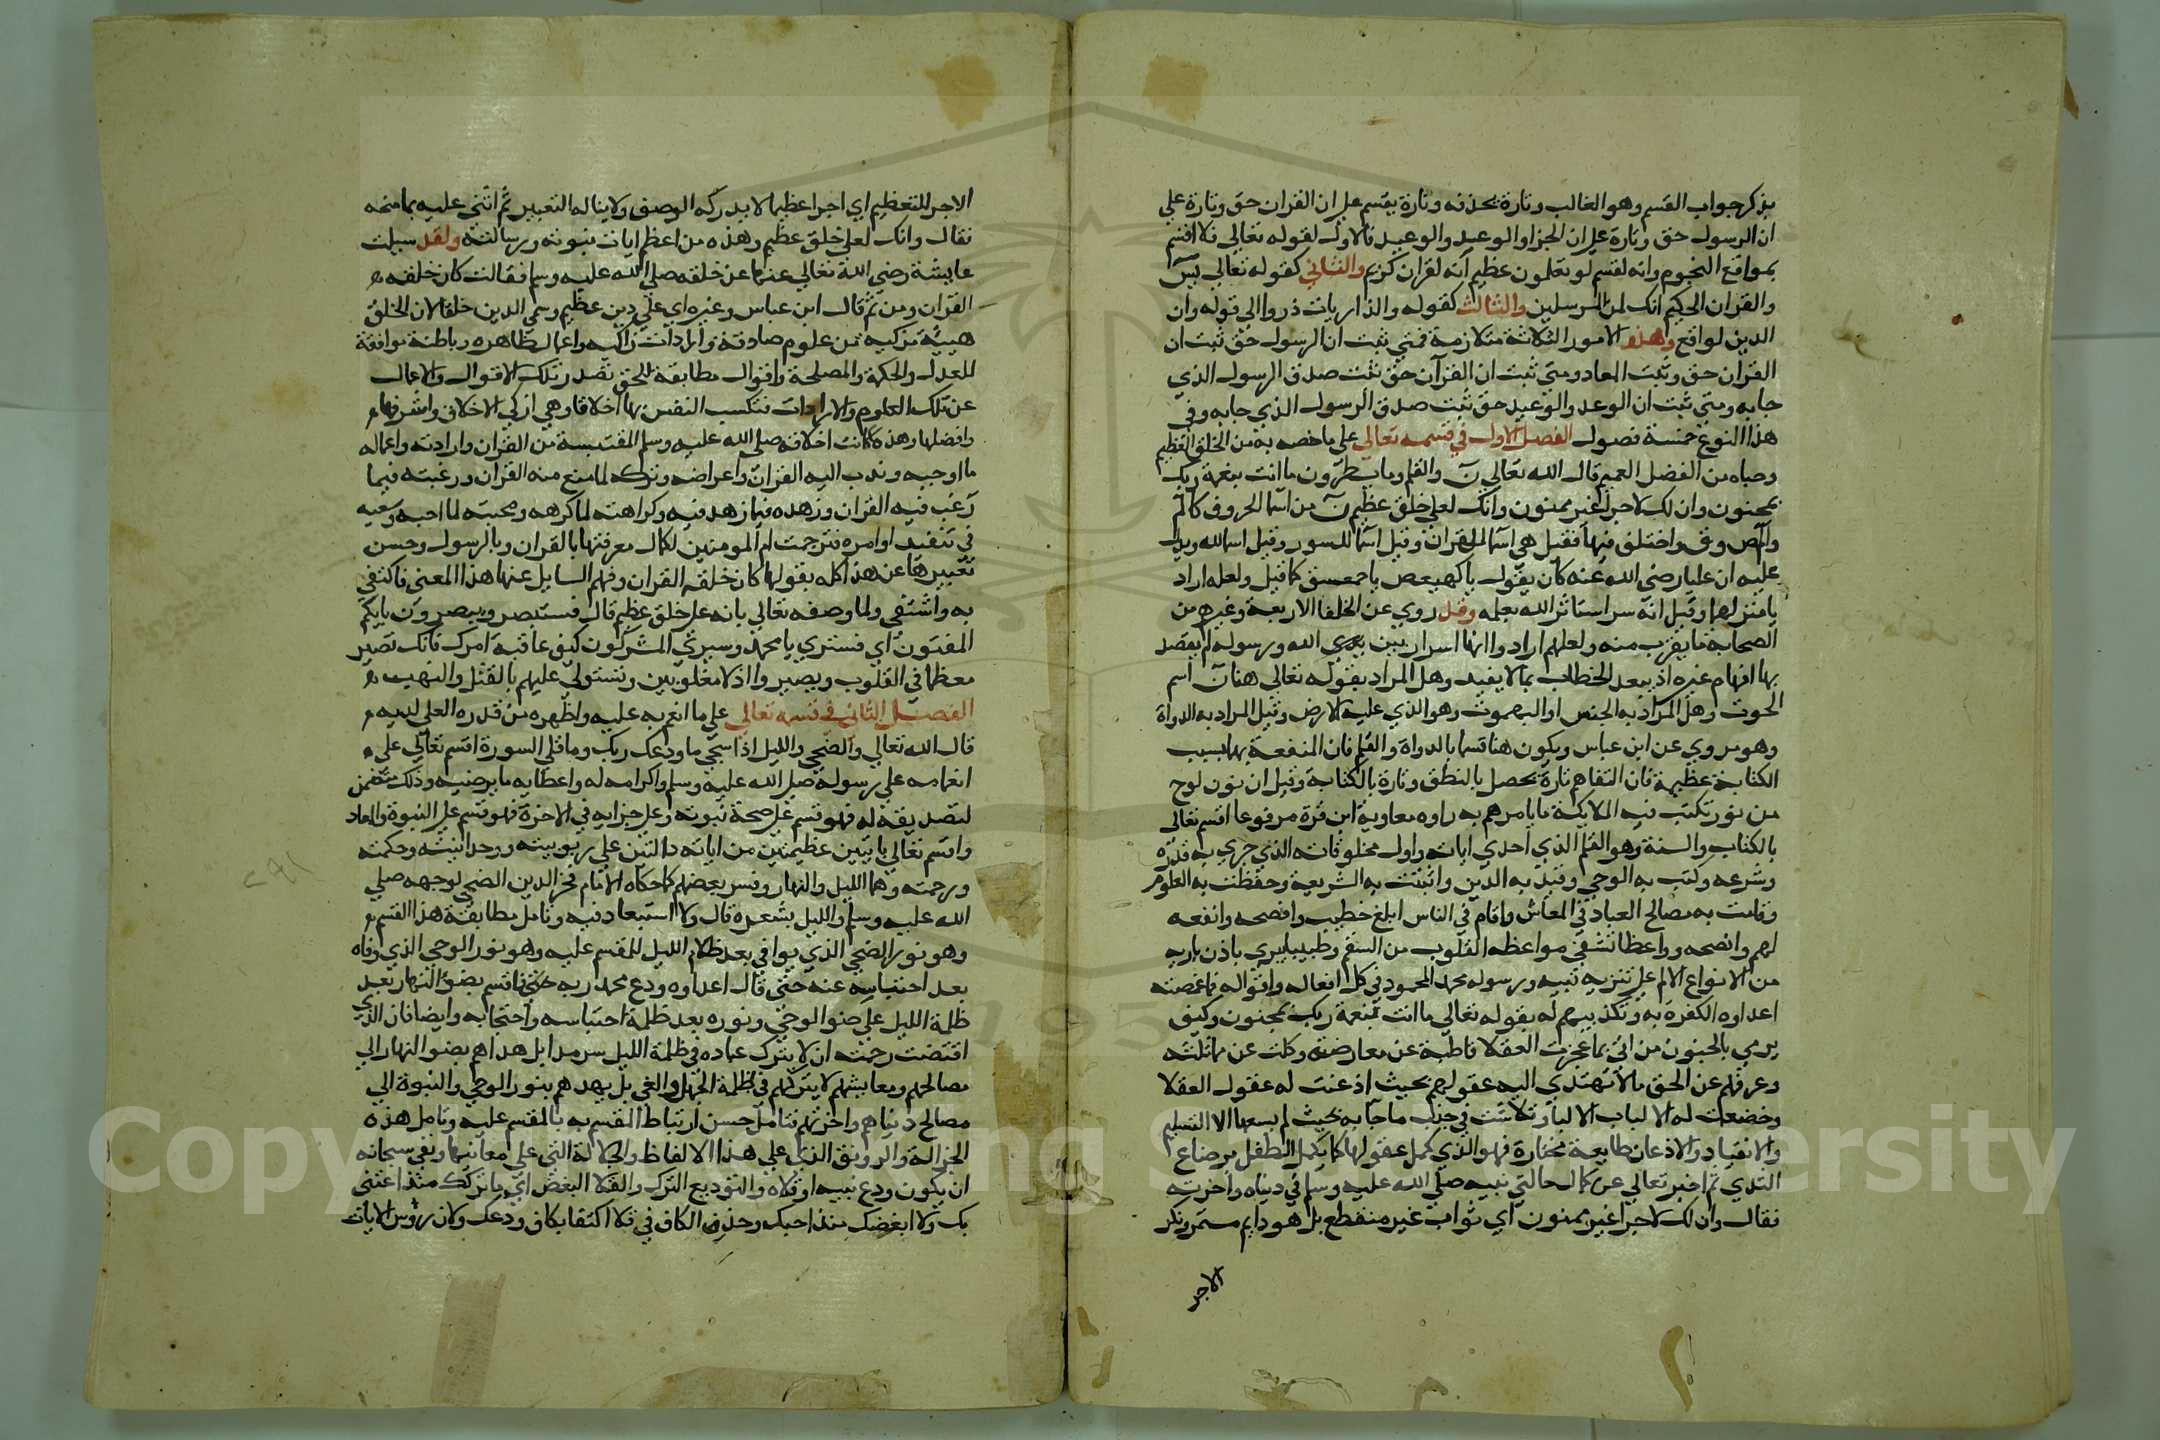 يذكر جواب القسم وهو الغالب وتارة يحذفه وتارة يقسم على ان القران حق وتارة على
ان الرسول حق وتارة على ان الجزا والوعد والوعيد فالاول لقوله تعالي فلا اقسم
بمواقع النجوم وانه لقسم لو تعلمون عظيم انه لقران كريم والثاني كقوله تعالي يس
والقران الحكيم انك لمن المرسلين والثالث كقوله والذاريات ذروا الي قوله وان
الدين لواقع وهذه الامور الثلاثة متلازمة فمتي ثبت ان الرسول حق ثبت ان
القران حق وثبت المعاد ومتي ثبت ان القرآن حق ثبت صدق الرسول الذي
جا به ومتي ثبت ان الوعد والوعيد حق ثبت صدق الرسول الذي جا به وفي
هذا النوع خمسة فصول الفصل الاول في قسمه تعالي علي ما خصه به من الخلق العظيم
وحباه من الفضل العميم قال الله تعالي ن والقلم وما يسطرون ما انت بنعمة ربك
بمجنون وان لك لاجرا غير ممنون وانك لعلي خلق عظيم ن من اسما الحروف كالم
والمص وق واختلف فيها فقيل هي اسما للقران وقيل اسما للسور وقيل اسما لله ويدل
عليه ان عليا رضي الله عنه كان يقول يا كهيعص يا حمعسق كما قيل ولعله اراد
يا منزلهما وقيل انه سر استاثر الله بعلمه وقد روي عن الخلفا الاربعة وغيرهم من
الصحابة ما يقرب منه ولعلهم ارادوا انها اسرار بين الله ورسوله لم يقصد
بها افهام غيره اذ يبعد الخطاب بما لا يفيد وهل المراد بقوله تعالي هنا ن اسم
الحوت وهل المراد به الجنس او البهموت وهو الذي عليه الارض وقيل المراد به الدواة
وهو مروي عن ابن عباس ويكون هنا قسما بالدواة والقلم فان المنفعة بهما بسبب
الكتابة عظيمة فان التفاهم تارة يحصل بالنطق وتارة بالكتابة وقيل ان نون لوح
من نور تكتب فيه الملايكة ما يامرهم به رواه معاوية ابن قرة مرفوعا اقسم تعالى
بالكتاب والسنة وهو القلم الذي احدي اياته واول مخلوقاته الذي جري به قدره
وشرعه وكتب به الوحي وقيد به الدين واثبتت به الشريعة وحفظت به العلوم
وقامت به مصالح العباد في المعاش واقام في الناس ابلغ خطيب وافصحه وانفعه
لهم وانصحه وواعظا تشفي مواعظه القلوب من السقم وطبيبا يبري باذن باريه
من الانواع الالم علي تنزيه نبيه ورسوله محمد المحمود في كل افعاله واقواله مما غمصته
اعداوه الكفرة به وتكذيبهم له بقوله تعالي ما انت بنعمة ربك بمجنون وكيف
يرمي بالجنون من اتي بما عجزت العقلا قاطبة عن معارضته وكلت عن مماثلته
وعرفهم عن الحق ما لا تهتدي اليه عقولهم بحيث اذعنت له عقول العقلا
وخضعت له الالباب الالبا وتلاشت في جنب ما جا به بحيث لم يسعها الا التسليم
والانقياد والاذعان طايعة مختارة فهو الذي كمل عقولها كما يكمل الطفل برضاع
الثدي ثم اخبر تعالي عن كمال حالتي نبيه صلي الله عليه وسلم في دنياه واخرته
فقال وان لك لاجرا غير ممنون اي ثواب غير منقطع بل هو دايم مستمر ونكر
الاجر
الاجر للتعظيم اي اجرا عظيما لا يدركه الوصف ولا يناله التعبير ثم اثني عليه بما منحه
فقال وانك لعلي خلق عظيم وهذه من اعظم ايات نبوته ورسالته ولقد سيلت
عايشة رضي الله تعالي عنها عن خلقه صلي الله عليه وسلم فقالت كان خلقه
القران ومن ثم قال ابن عباس وغيره اي علي دين عظيم وسمي الدين خلقا لان الخلق
هيئة مركبة من علوم صادقة وارادات زاكية واعمال ظاهره وباطنة موافقة
للعدل والحكمة والمصلحة واقوال مطابقة للحق تصدر تلك الاقوال والاعمال
عن تلك العلوم والارادات فتكسب النفس بها اخلاقا وهي ازكي الاخلاق واشرفها
وافضلها وهذه كانت اخلاقه صلي الله عليه وسلم المقتبسة من القران وارادته واعماله
ما اوجبه وندب اليه القران واعراضه وتركه لما منع منه القران ورغبته فيما
رغب فيه القران وزهده فيما زهد فيه وكراهته لما كرهه ومحبته لما احبه وسعيه
في تنفيذ اوامره فترجمت ام المومنين لكمال معرفتها بالقران وبالرسول وحسن
تعبيرها عن هذا كله بقولها كان خلقه القران وفهم السايل عنها هذا المعني فاكتفي
به واشتفي ولما وصفه تعالي بانه علي خلق عظيم قال فستبصر ويبصرون بايكم
المفتون اي فستري يا محمد وسيري المشركون كيف عاقبة امرك فانك تصير
معظما في القلوب ويصيروا اذلا مغلوبين وتستولي عليهم بالقتل والنهب
الفصل الثاني في قسمه تعالي علي ما انعم به عليه واظهره من قدره العلي لديه
قال الله تعالي والضحي والليل اذا سجي ما ودعك ربك وما قلي السورة اقسم تعالي علي
انعامه علي رسوله صلي الله عليه وسلم واكرامه له واعطايه ما يرضيه وذلك متضمن
لتصديقه له فهو قسم علي صحة نبوته وعلي جزايه في الاخرة فهو قسم علي النبوة والمعاد
واقسم تعالي بايتين عظيمتين من اياته دالتين علي ربوبيته ووحدانيته وحكمته
ورحمته وهما الليل والنهار وفسر بعضهم كما حكاه الامام فخر الدين الضحي لوجهه صلي
الله عليه وسلم والليل بشعره قال ولا استبعاد فيه وتامل مطابقة هذا القسم
وهو نور الضحي الذي يوافي بعد ظلام الليل للمقسم عليه وهو نور الوحي الذي وفاه
بعد احتباسه عنه حتي قال اعداوه ودع محمد ربه فاقسم بضو النهار بعد
ظلمة الليل علي ضو الوحي ونوره بعد ظلمة احتباسه واحتجابه وايضا فان الذي
اقتضت رحمته ان لا يترك عباده في ظلمة الليل سرمدا بل هداهم بضو النهار الي
مصالحهم ومعايشهم لا يتركهم في ظلمة الجهل والغي بل يهديهم بنور الوحي والنبوة الي
مصالح دنياهم واخرتهم فتامل حسن ارتباط المقسم به بالمقسم عليه وتامل هذه
الجزالة والرونق الذي علي هذا الالفاظ والجلالة التي علي معانيها ونفي سبحانه
ان يكون ودع نبيه او قلاه والتوديع الترك والقلا البغض اي ما تركك منذ اعتني
بك ولا ابغضك منذ احبك وحذف الكاف في قلا اكتفا بكاف ودعك ولان رؤس الايات
Copyright © King Saud University